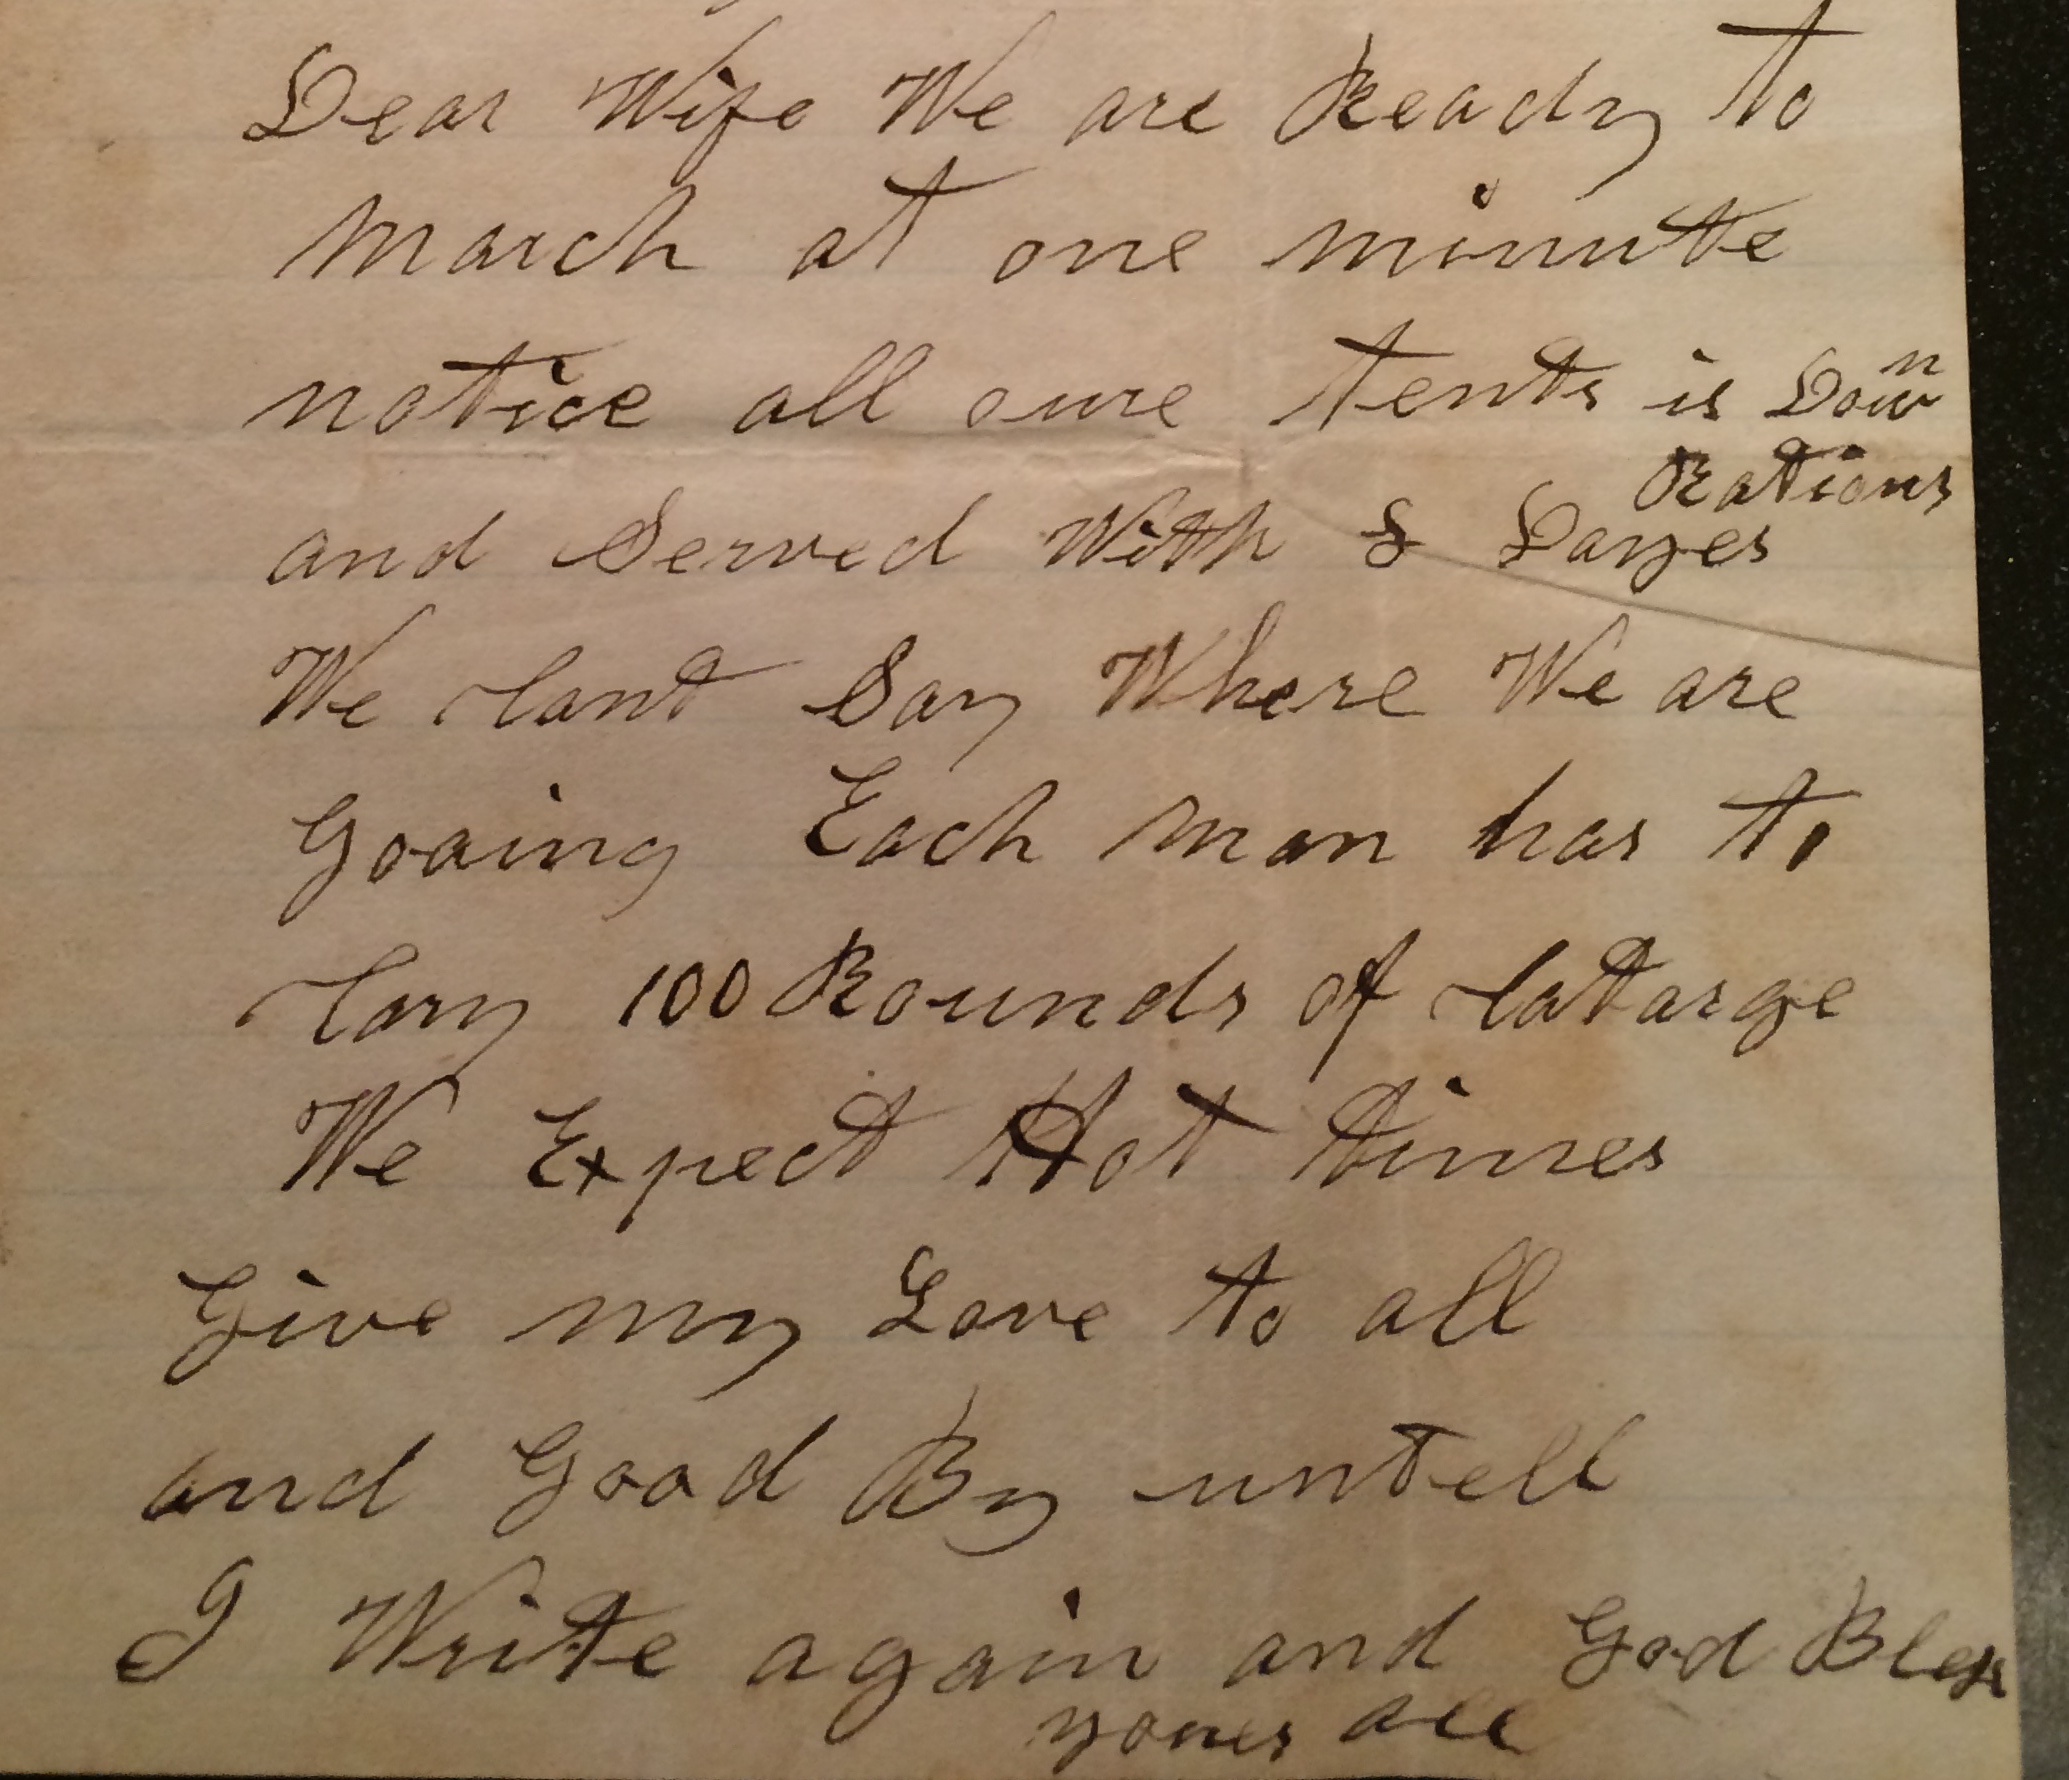 Dear Wife We are Ready to
March at one minute
notice all oure tents is Down
and Served With 8 Dayes Rations
We Cant Say Where We are
Goaing Each man has to
Cary 100 Rounds of Catarge
We Expect Hot times
Give my Love to all
and Good By untell
I Write again and God Bless
youes all